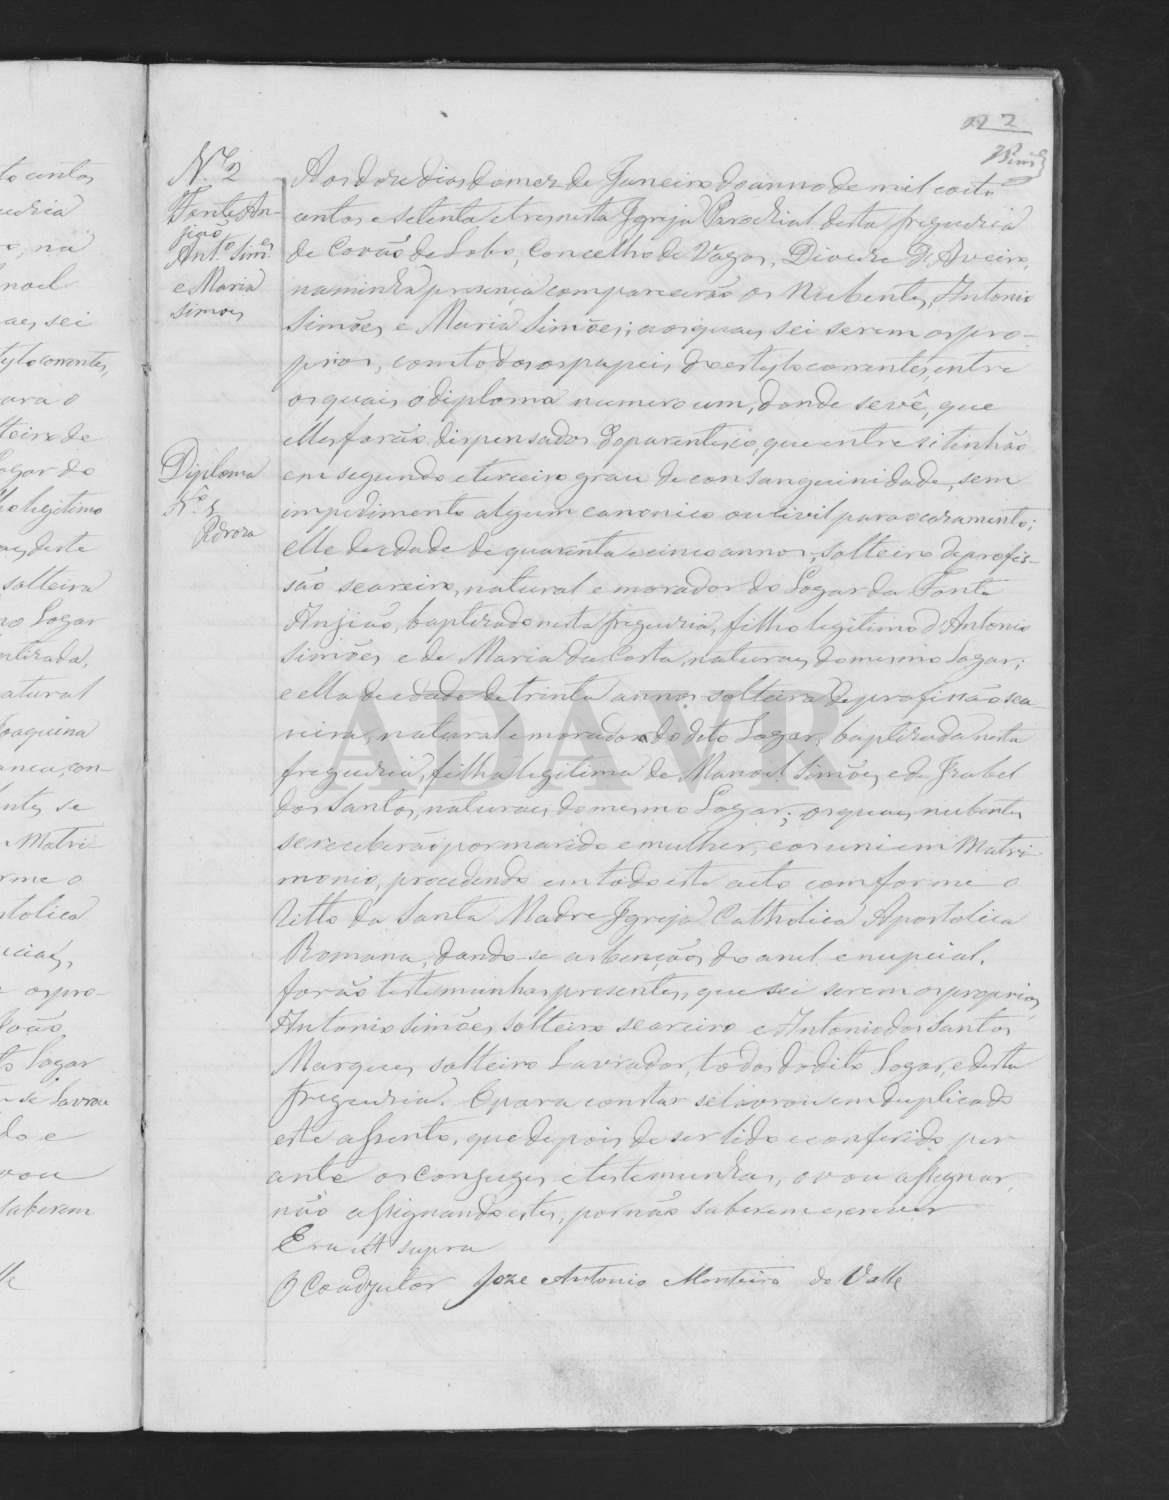 2
N.º 2
Fonte An-
jião
Ant.º Sim.es
e Maria
Simoes
Diploma
N.º 1
Pedroza
Aos doze dias do mez de Janeiro do anno de mil oito
centos e setenta e tres nesta Igreja Parochial desta freguezia
de Covão do Lobo, Concelho de Vagos, Diocese d'Aveiro,
na minha presença comparecerão os Nubentes, Antonio
Simões e Maria Simões; aos quaes sei serem os pro-
prios, com todos os papeis do estylo correntes, entre
os quais o diploma numero um, donde se vê, que
elles forão dispensados do parentesco, que entre si tinhão
em segundo e terceiro grau de consanguinidade, sem
impedimento algum canonico ou civil para o cazamento;
elle de edade de quarenta e cinco annos, solteiro de profis-
são seareiro, natural e morador do Logar da Fonte
Anjião, baptizado nesta freguezia, filho legitimo d'Antonio
Simões e de Maria da Costa, naturaes do mesmo Logar;
e ella de edade de trinta annos solteira de profissão sea
reira, natural e moradora do dito Logar, baptizada nesta
freguezia, filha legitima de Manoel Simões e de Izabel
dos Santos, naturaes do mesmo Logar; os quaes nubentes
se receberão por marido e mulher, e os uni em Matri
monio, procedendo em todo este acto comforme o
Ritto da Santa Madre Igreja Catholica Apostolica
Romana, dando-se as bençãos do anel e nupcial.
forão testemunhas presentes, que sei serem os proprios
Antonio Simões, solteiro seareiro e Antonio dos Santos
Marques solteiro Lavrador, todos do dito Logar, e desta
freguezia. E para constar se lavrou em duplicado
este assento, que depois de ser lido e conferido per
ante os conjuges e testemunhas, o vou assignar,
não assignando estes, por não saberem escrever
Era ut supra
O Coadjutor Joze Antonio Monteiro do Valle
ADAVR